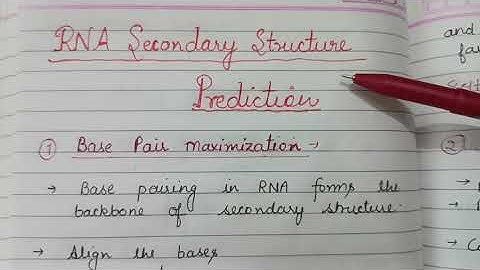 RNA Secondary Structure
Prediction
① Base Pair maximization →
→ Base pairing in RNA forms the
backbone of secondary structure.
→ Align the bases
and
②